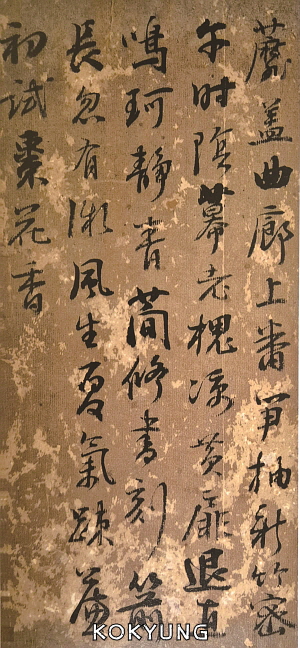 蓋曲廊上番笋抽新竹密
午時陰幕老槐凉黃扉退直
鳴珂靜青簡修書刻箭
長忽有微風生夏氣疎簾
初試棗花香
KOKYUNG